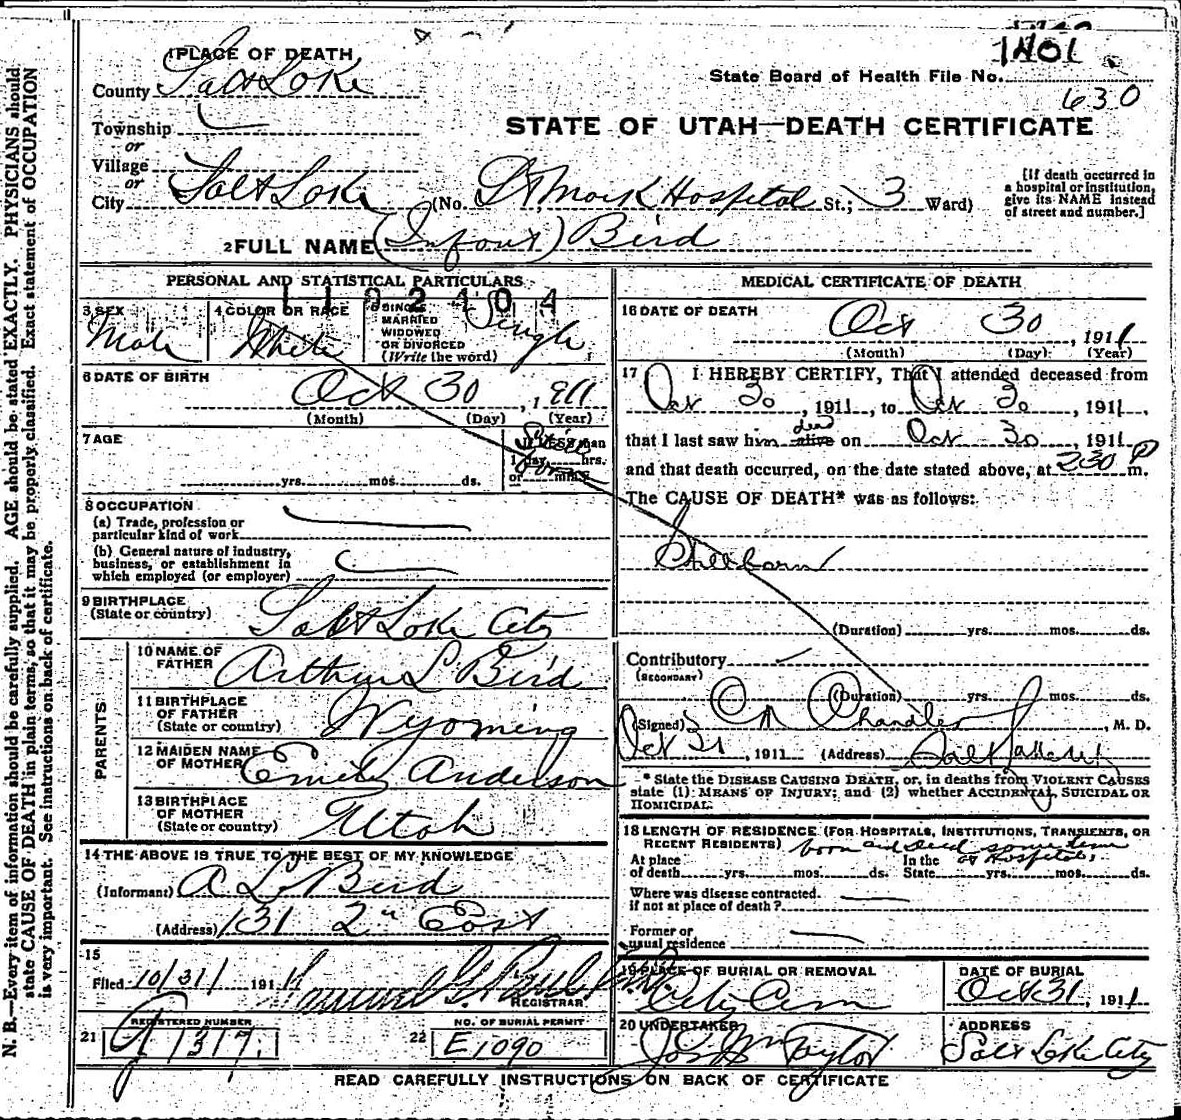 1401
State Board of Health File No.
630
1 PLACE OF DEATH
County Salt Lake
Township
or
Village
or
City Salt Lake (No. St Mark Hospital St.; 3 Ward)
STATE OF UTAH—DEATH CERTIFICATE
[If death occurred in
a hospital or institution,
give its NAME instead
of street and number.]
2 FULL NAME (Infant) Bird
PERSONAL AND STATISTICAL PARTICULARS
1 1 0 2 4 0 4
3 SEX
Male
4 COLOR OR RACE
White
5 SINGLE
MARRIED
WIDOWED
OR DIVORCED
(Write the word)
Single
6 DATE OF BIRTH
Oct 30, 1911
(Month) (Day) (Year)
7 AGE
yrs. mos. ds.
If LESS than
1 day, hrs.
or min.?
Still
born
8 OCCUPATION
(a) Trade, profession or
particular kind of work
(b) General nature of industry,
business, or establishment in
which employed (or employer)
9 BIRTHPLACE
(State or country)
Salt Lake City
PARENTS
10 NAME OF
FATHER
Arthur L Bird
11 BIRTHPLACE
OF FATHER
(State or country)
Wyoming
12 MAIDEN NAME
OF MOTHER
Emily Anderson
13 BIRTHPLACE
OF MOTHER
(State or country)
Utah
14 THE ABOVE IS TRUE TO THE BEST OF MY KNOWLEDGE
(Informant) A L Bird
(Address) 131 2" East
15
Filed 10/31/ 1911
REGISTRAR
21 REGISTERED NUMBER
1317.
22 NO. OF BURIAL PERMIT
E 1090
MEDICAL CERTIFICATE OF DEATH
16 DATE OF DEATH
Oct 30, 1911
(Month) (Day) (Year)
17 I HEREBY CERTIFY, That I attended deceased from
Oct 30, 1911, to Oct 30, 1911,
that I last saw him alive dead on Oct 30, 1911
and that death occurred, on the date stated above, at 230 P m.
The CAUSE OF DEATH* was as follows:
Stillborn
(Duration) yrs. mos. ds.
Contributory
(SECONDARY)
(Duration) yrs. mos. ds.
(Signed) Chandler, M. D.
Oct 31, 1911 (Address)
* State the DISEASE CAUSING DEATH, or, in deaths from VIOLENT CAUSES
state (1) MEANS OF INJURY; and (2) whether ACCIDENTAL, SUICIDAL OR
HOMICIDAL.
18 LENGTH OF RESIDENCE (FOR HOSPITALS, INSTITUTIONS, TRANSIENTS, OR
RECENT RESIDENTS) born and died some time
at Hospital.
At place
of death yrs. mos. ds.
In the
State yrs. mos. ds.
Where was disease contracted.
if not at place of death?
Former or
usual residence
19 PLACE OF BURIAL OR REMOVAL
City Cem
DATE OF BURIAL
Oct 31, 1911
20 UNDERTAKER
Jos Wm Taylor
ADDRESS
Salt Lake City
READ CAREFULLY INSTRUCTIONS ON BACK OF CERTIFICATE
N. B.—Every item of information should be carefully supplied. AGE should be stated EXACTLY. PHYSICIANS should
state CAUSE OF DEATH in plain terms, so that it may be properly classified. Exact statement of OCCUPATION
is very important. See instructions on back of certificate.